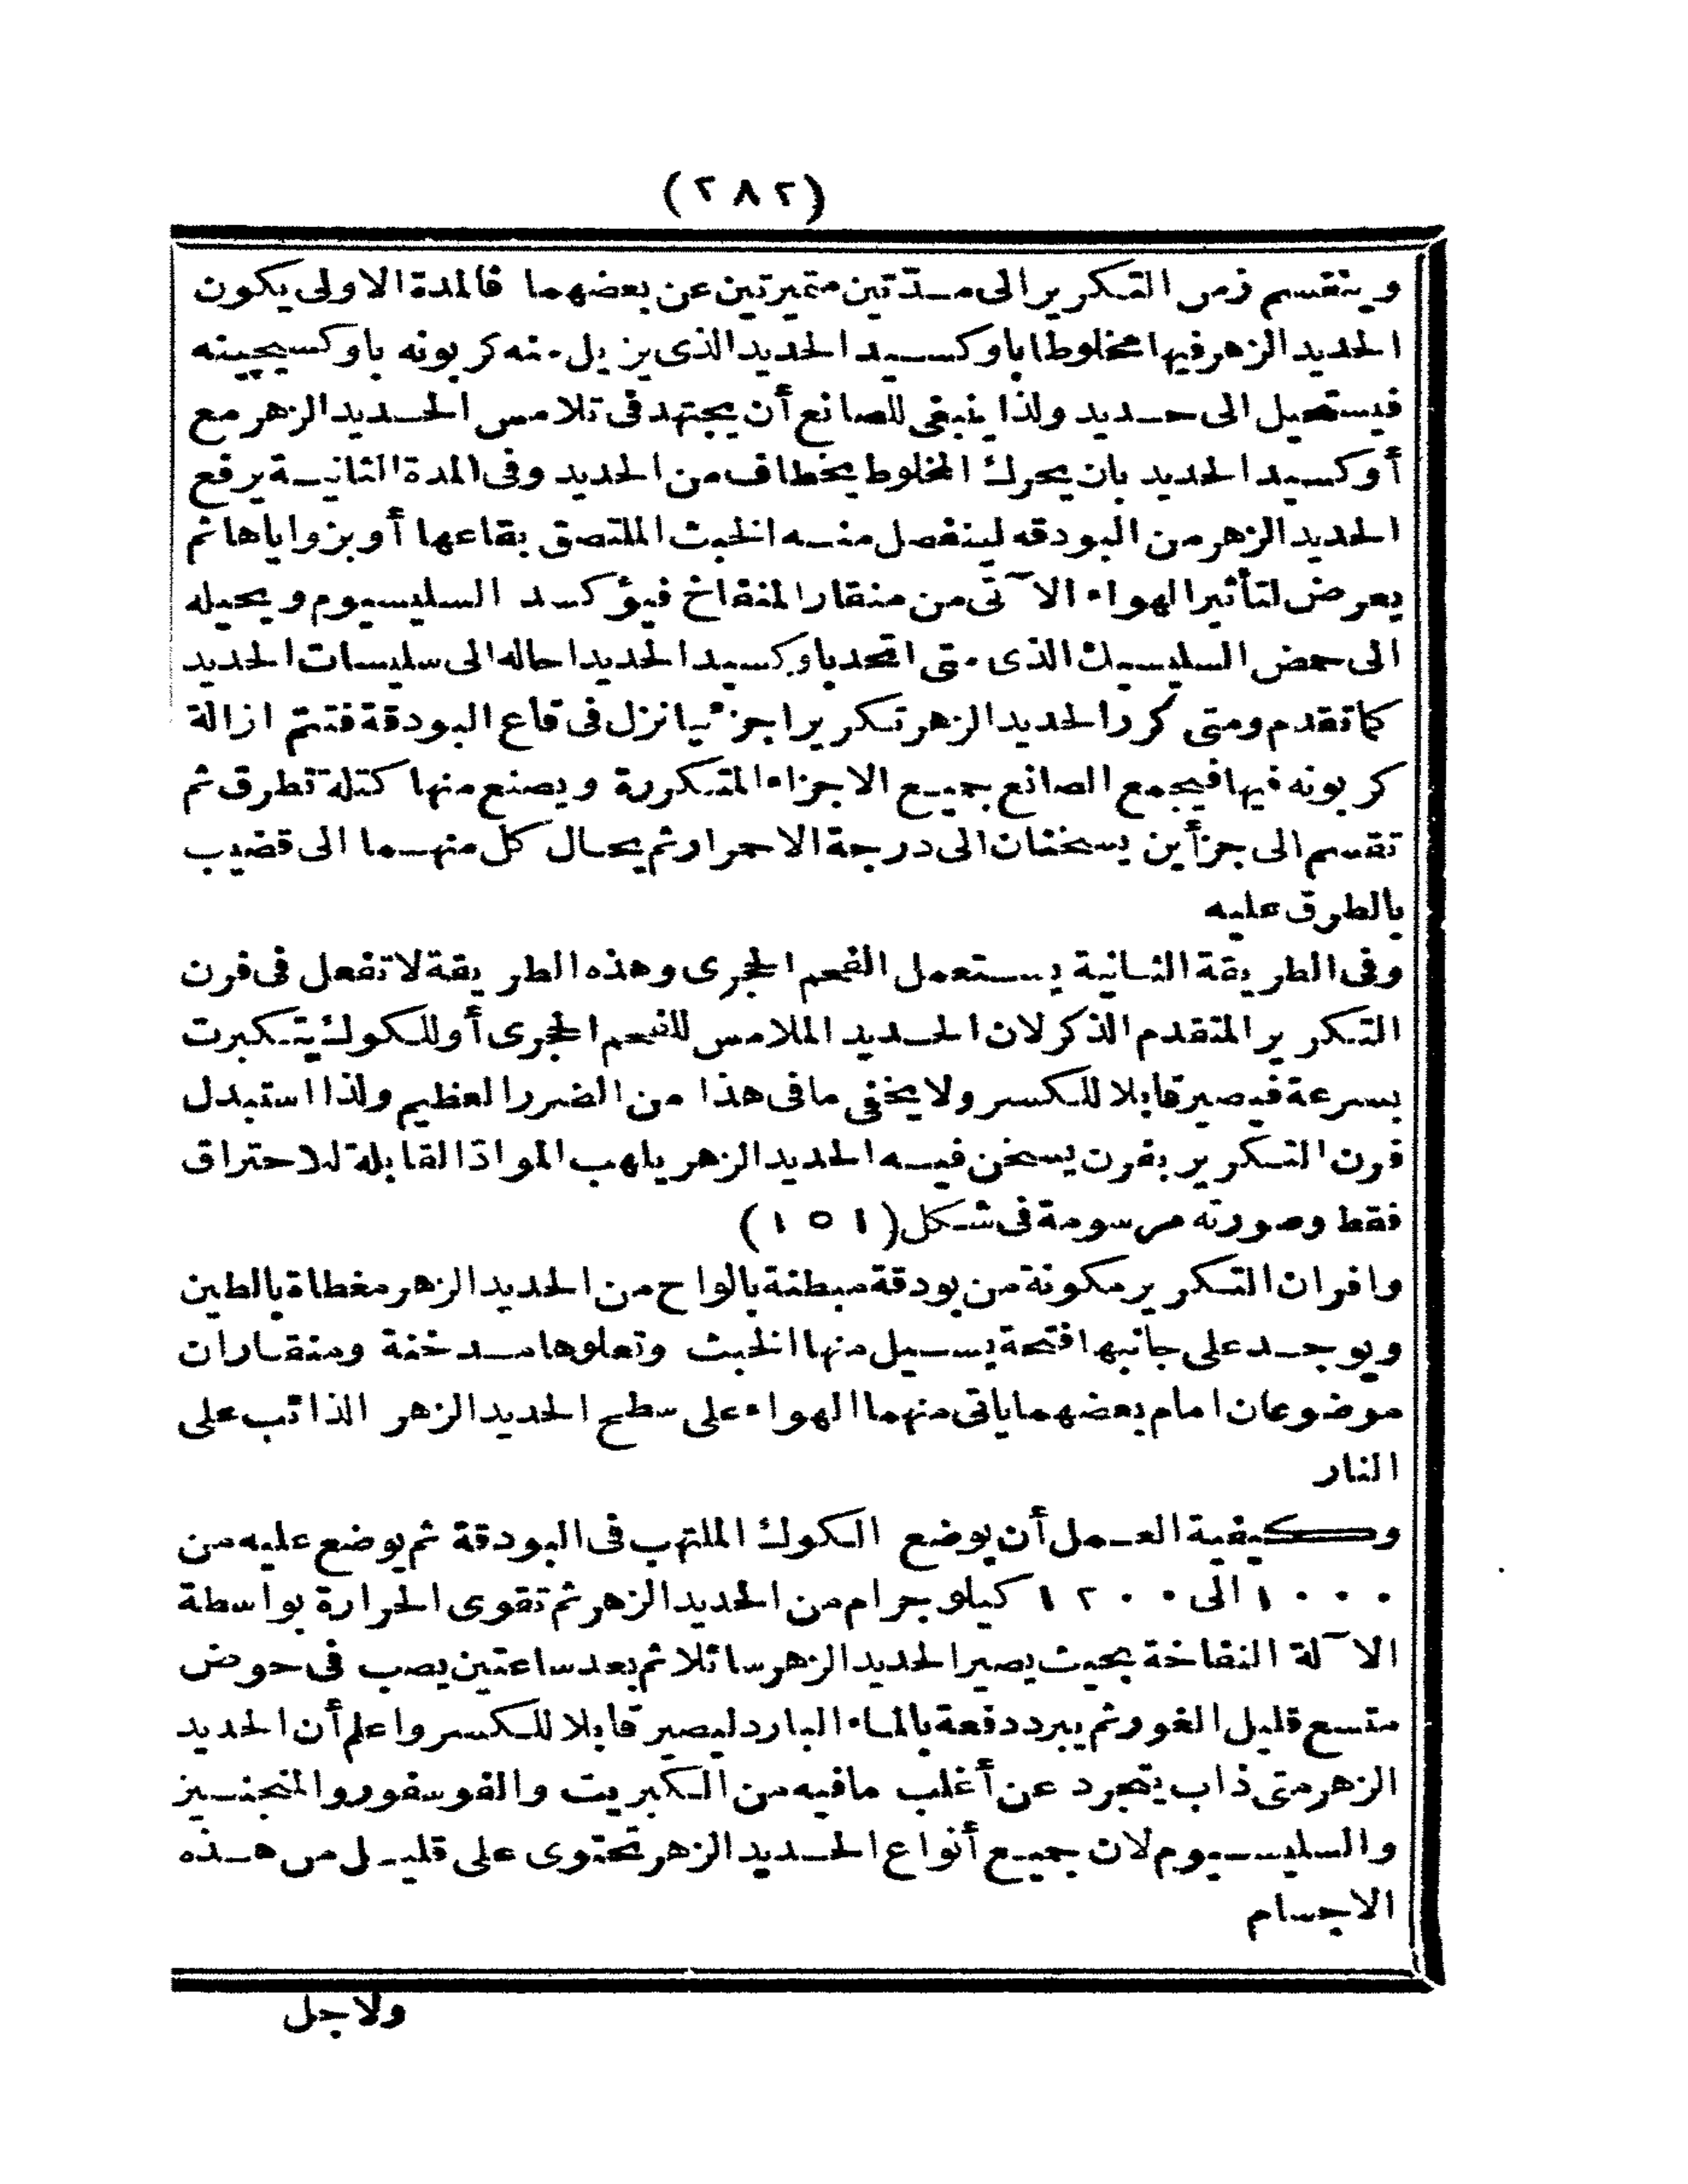 (٢٨٢)
وينقسم زمن التكرير الى مدّتين متميزتين عن بعضهما فالمدة الاولى يكون
الحديد الزهر فيها مخلوطا باوكسيد الحديد الذى يزيل منه كربونه باوكسيجينه
فيستحيل الى حديد ولذا ينبغى للصانع أن يجتهد فى تلامس الحديد الزهر مع
أوكسيد الحديد بان يحرك المخلوط بخطاف من الحديد وفى المدة الثانية يرفع
الحديد الزهر من البودقه لينفصل منه الخبث الملتصق بقاعها أو بزواياها ثم
يعرض لتأثير الهواء الآتى من منقار المنفاخ فيؤكسد السليسيوم ويحيله
الى حمض السليسيك الذى متى اتحد باوكسيد الحديد احاله الى سليسات الحديد
كما تقدم ومتى كرر الحديد الزهر تكريرا جزئيا نزل فى قاع البودقة فتتم ازالة
كربونه فيها فيجمع الصانع جميع الاجزاء المتكررة ويصنع منها كتلة تطرق ثم
تقسم الى جزأين يسخنان الى درجة الاحمرار ثم يحال كل منهما الى قضيب
بالطرق عليه
وفى الطريقة الثانية يستعمل الفحم الحجرى وهذه الطريقة لا تفعل فى فرن
التكرير المتقدم الذكر لان الحديد الملامس للفحم الحجرى أو للكوك يتكبرت
بسرعة فيصير قابلا للكسر ولا يخفى ما فى هذا من الضرر العظيم ولذا استبدل
فرن التكرير بفرن يسخن فيه الحديد الزهر بلهب الموادّ القابلة للاحتراق
فقط وصورته مرسومة فى شكل (١٥١)
وافران التكرير مكونة من بودقة مبطنة بالواح من الحديد الزهر مغطاة بالطين
ويوجد على جانبها فتحة يسيل منها الخبث وتعلوها مدخنة ومنقاران
موضوعان امام بعضهما ياتى منهما الهواء على سطح الحديد الزهر الذائب على
النار
وكيفية العمل أن يوضع الكوك الملتهب فى البودقة ثم يوضع عليه من
١٠٠٠ الى ١٢٠٠ كيلوجرام من الحديد الزهر ثم تقوى الحرارة بواسطة
الآلة النفاخة بحيث يصير الحديد الزهر سائلا ثم بعد ساعتين يصب فى حوض
متسع قليل الغور ثم يبرد دفعة بالماء البارد ليصير قابلا للكسر واعلم أن الحديد
الزهر متى ذاب يتجرد عن أغلب ما فيه من الكبريت والفوسفور والمنجنيز
والسليسيوم لان جميع أنواع الحديد الزهر تحتوى على قليل من هذه
الاجسام
ولاجل